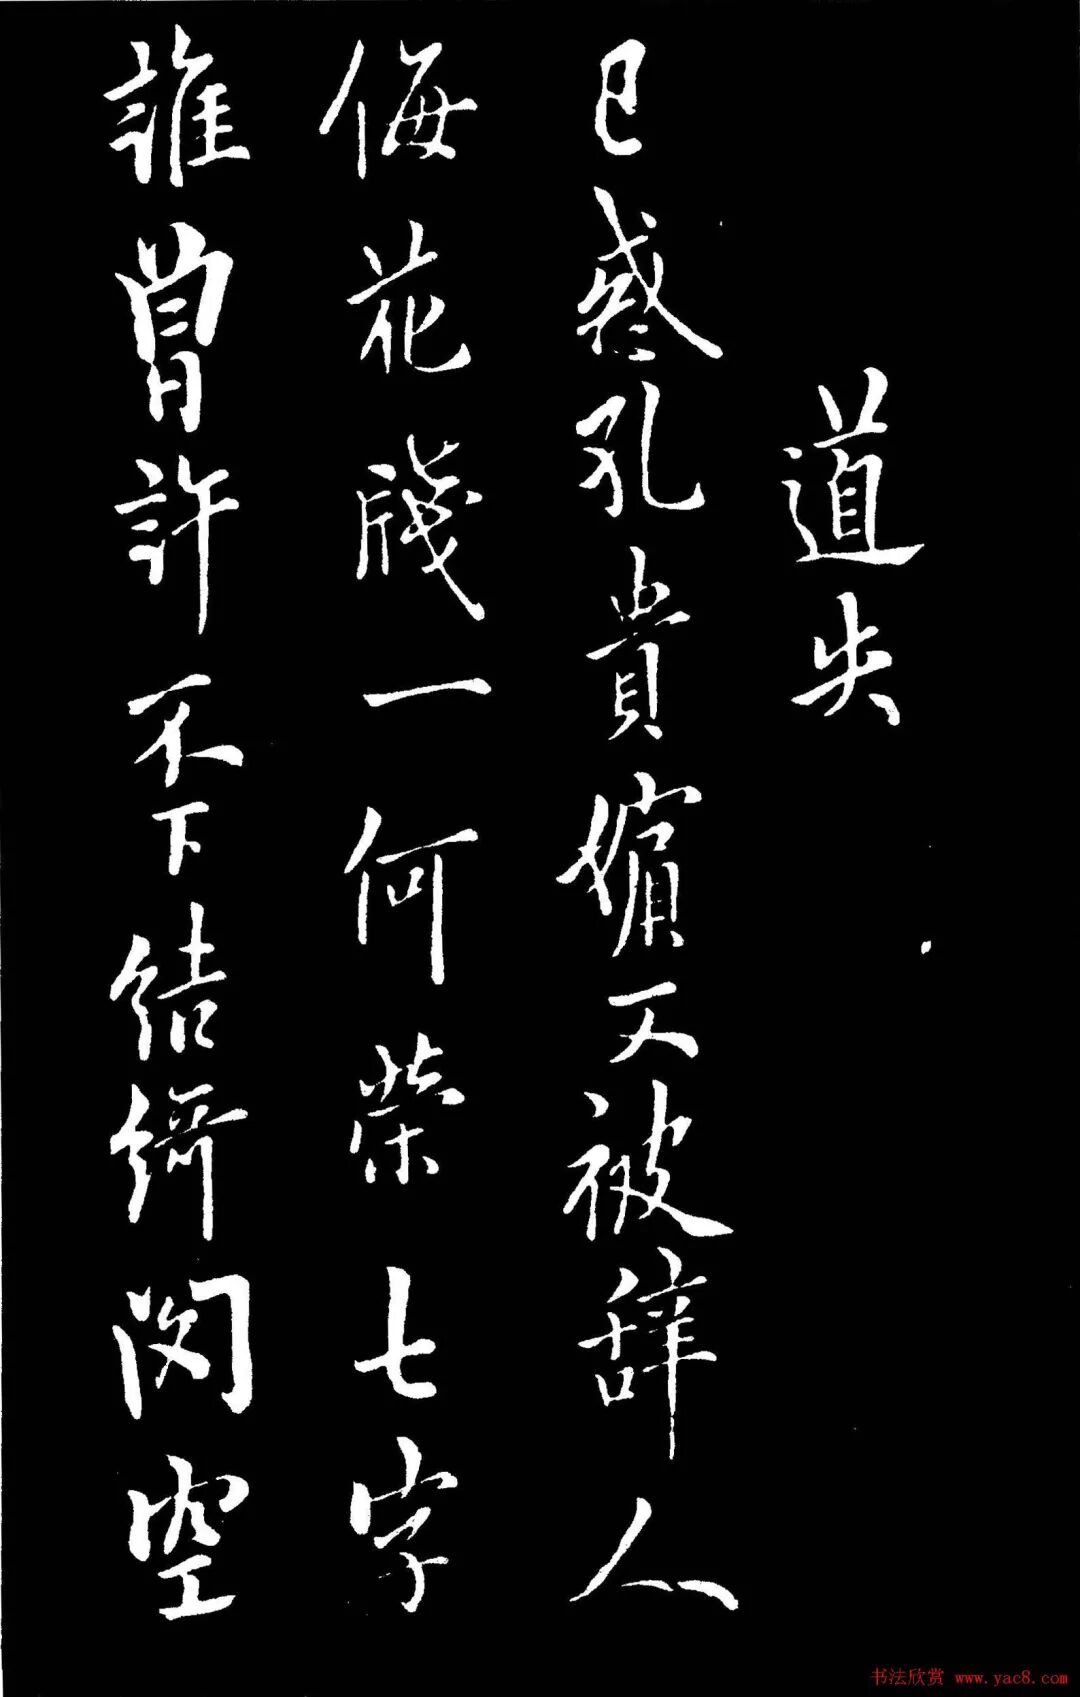 道失
已惑孔貴嬪又被辞人
侮花牋一何荣七字
誰曾許不下結綺閣空
书法欣赏 www.yac8.com